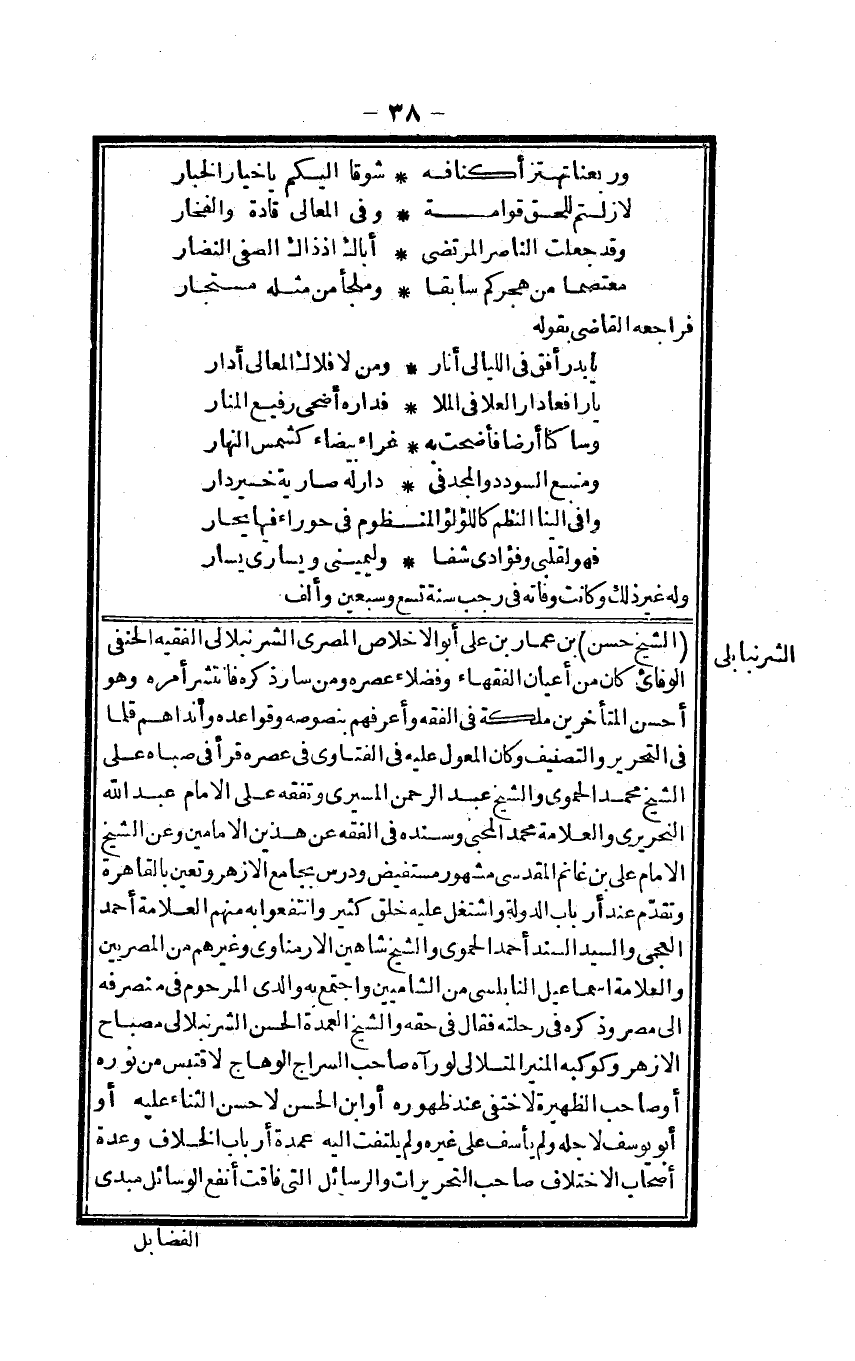 - ٣٨ -
وربعنا تهتز أكنافه * شوقا اليكم ياخيار الخيار
لازلتم للحق قوامة * وفى المعالى قادة والفخار
وقد جعلت الناصر المرتضى * أباك اذ ذاك الصفى النضار
معتصما من هجركم سابقا * وملجأ من مثله مستجار
فراجعه القاضى بقوله
يابدر أفق فى الليالى أنار * ومن لافلاك المعالى أدار
يارافعا دار العلا فى الملا * فداره أضحى رفيع المنار
وساكنا أرضا فأضحت به * غراء بيضاء كشمس النهار
ومنبع السودد والمجد فى * دار له صارية خير دار
وافى الينا النظم كاللؤلؤ المنظوم فى حوراء فيها يحار
فهو لقلبى وفؤادى شفا * وليمينى ويسارى يسار
وله غير ذلك وكانت وفاته فى رجب سنة تسع وسبعين وألف
(الشيخ حسن) بن عمار بن على أبو الاخلاص المصرى الشرنبلالى الفقيه الحنفى
الشرنبلالى
الوفائى كان من أعيان الفقهاء وفضلاء عصره ومن سار ذكره فانتشر أمره وهو
أحسن المتأخرين ملكة فى الفقه وأعرفهم بنصوصه وقواعده وأنداهم قلما
فى التحرير والتصنيف وكان المعول عليه فى الفتاوى فى عصره قرأ فى صباه على
الشيخ محمد الحموى والشيخ عبد الرحمن المسيرى وتفقه على الامام عبد الله
النحريرى والعلامة محمد المحبى وسنده فى الفقه عن هذين الامامين وعن الشيخ
الامام على بن غانم المقدسى مشهور مستفيض ودرس بجامع الازهر وتعين بالقاهرة
وتقدّم عند أرباب الدولة واشتغل عليه خلق كثير وانتفعوا به منهم العلامة أحمد
العجمى والسيد السند أحمد الحموى والشيخ شاهين الارمناوى وغيرهم من المصريين
والعلامة اسماعيل النابلسى من الشاميين واجتمع به والدى المرحوم فى منصرفه
الى مصر وذكره فى رحلته فقال فى حقه والشيخ العمدة الحسن الشرنبلالى مصباح
الازهر وكوكبه المنير المتلالى لو رآه صاحب السراج الوهاج لاقتبس من نوره
أو صاحب الظهيرة لاختفى عند ظهوره أو ابن الحسن لاحسن الثناء عليه أو
أبو يوسف لاجله ولم يأسف على غيره ولم يلتفت اليه عمدة أرباب الخلاف وعدة
أصحاب الاختلاف صاحب التحريرات والرسائل التى فاقت أنفع الوسائل مبدى
الفضايل